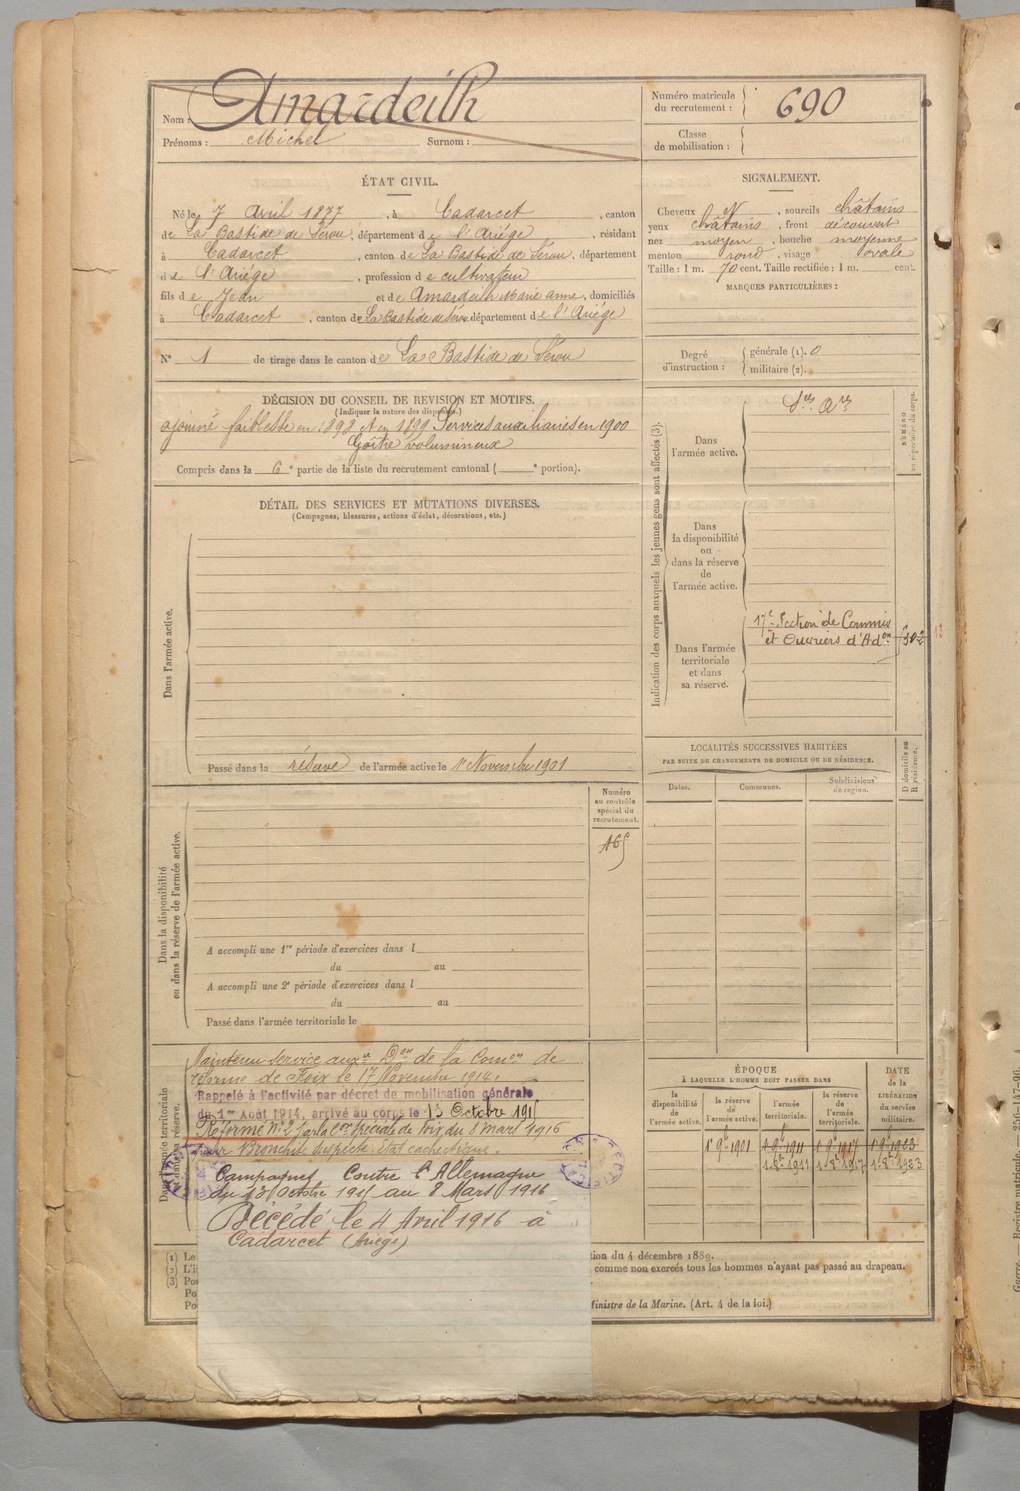 Nom : Amardeilh
Prénoms : Michel Surnom :
Numéro matricule du recrutement : 690
Classe de mobilisation :
ÉTAT CIVIL.
Né le 7 Avril 1877, à Cadarcet, canton
de La Bastide de Sérou, département de l'Ariège, résidant
à Cadarcet, canton de La Bastide de Sérou, département
de l'Ariège, profession de cultivateur
fils de Jean et de Amardeilh Marie Anne, domiciliés
à Cadarcet, canton de La Bastide de Sérou département de l'Ariège
N° 1 de tirage dans le canton de La Bastide de Sérou
SIGNALEMENT.
Cheveux N, sourcils châtains
yeux châtains, front découvert
nez moyen, bouche moyenne
menton rond, visage ovale
Taille : 1 m. 70 cent. Taille rectifiée : 1 m. cent.
MARQUES PARTICULIÈRES :
Degré d'instruction : générale (1). 0
militaire (2).
DÉCISION DU CONSEIL DE REVISION ET MOTIFS.
(Indiquer la nature des dispenses.)
ajourné faiblesse en 1898 et en 1899 Services auxiliaires en 1900
Goître volumineux
Compris dans la 6e partie de la liste du recrutement cantonal ( e portion).
DÉTAIL DES SERVICES ET MUTATIONS DIVERSES.
(Campagnes, blessures, actions d'éclat, décorations, etc.)
Dans l'armée active.
Passé dans la réserve de l'armée active le 1er Novembre 1901
Indication des corps auxquels les jeunes gens sont affectés (3).
NUMÉRO au répertoire du corps.
Dans l'armée active.
Dans la disponibilité ou dans la réserve de l'armée active.
Dans l'armée territoriale et dans sa réserve.
17e Section de Commis
et Ouvriers d'Adon
LOCALITÉS SUCCESSIVES HABITÉES
PAR SUITE DE CHANGEMENTS DE DOMICILE OU DE RÉSIDENCE.
Dates. Communes. Subdivisions de région.
D domicile ou R résidence.
Dans la disponibilité ou dans la réserve de l'armée active.
Numéro au contrôle spécial du recrutement.
165
A accompli une 1re période d'exercices dans l
du au
A accompli une 2e période d'exercices dans l
du au
Passé dans l'armée territoriale le
Maintenu service auxre Don de la Comon de
réforme de Foix le 17 Novembre 1914.
Rappelé à l'activité par décret de mobilisation générale
du 1er Août 1914, arrivé au corps le 13 Octobre 1915
Réformé n° 2 par la Con Spéciale de Foix du 8 mars 1916
pour Bronchite suspecte. Etat cachectique.
Campagnes Contre l'Allemagne
du 13 Octobre 1915 au 8 Mars 1916
Décédé le 4 Avril 1916 à
Cadarcet (Ariège)
ÉPOQUE
À LAQUELLE L'HOMME DOIT PASSER DANS
la disponibilité de l'armée active.
la réserve de l'armée active.
l'armée territoriale.
la réserve de l'armée territoriale.
DATE de la LIBÉRATION du service militaire.
1er 9bre 1901 1er 9bre 1911 1er 9bre 1917 1er 9bre 1923
1er 8bre 1911 1er 8bre 1917 1er 8bre 1923
(1) Le
(2) L'i
(3) Pou
Po
Pou
tion du 4 décembre 1889.
comme non exercés tous les hommes n'ayant pas passé au drapeau.
Ministre de la Marine. (Art. 4 de la loi.)